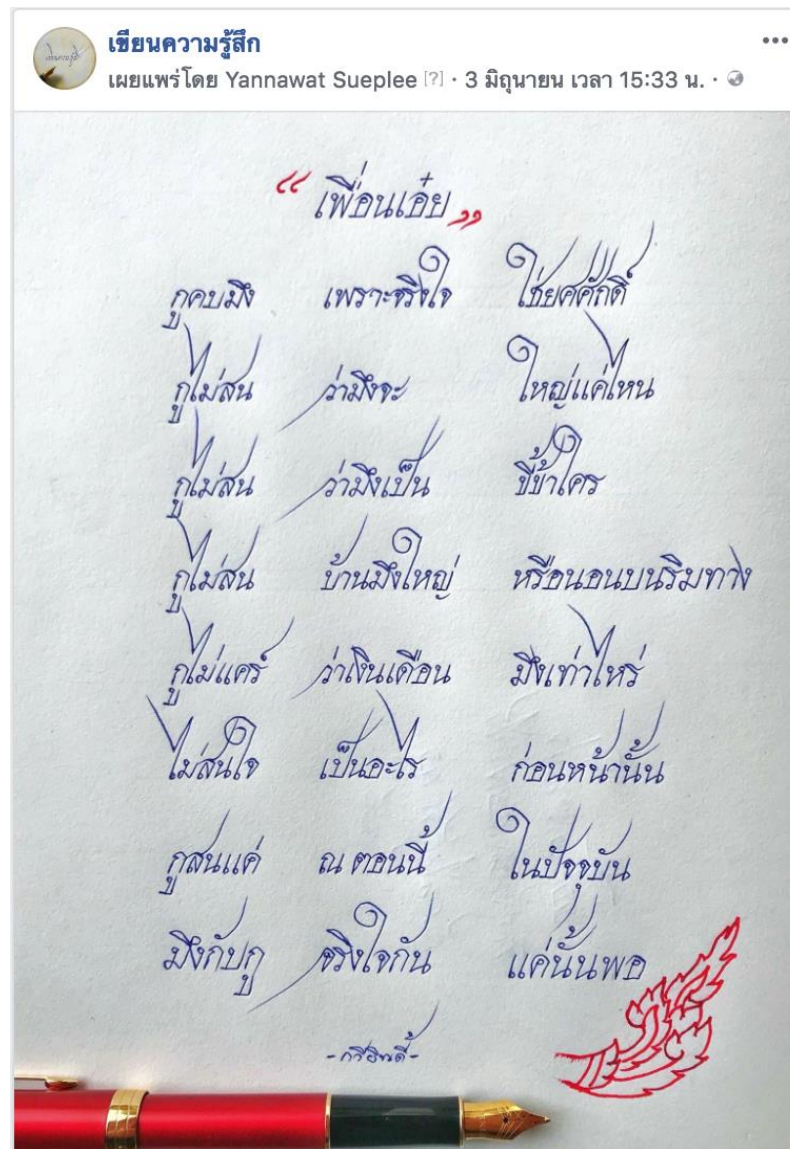 เขียนความรู้สึก
เผยแพร่โดย Yannawat Sueplee [?] · 3 มิถุนายน เวลา 15:33 น. ·
“ เพื่อนเอ๋ย ”
กูคบมึง เพราะจริงใจ ใช่ยศศักดิ์
กูไม่สน ว่ามึงจะ ใหญ่แค่ไหน
กูไม่สน ว่ามึงเป็น ขี้ข้าใคร
กูไม่สน บ้านมึงใหญ่ หรือนอนบนริมทาง
กูไม่แคร์ ว่าเงินเดือน มึงเท่าไหร่
ไม่สนใจ เป็นอะไร ก่อนหน้านั้น
กูสนแค่ ณ ตอนนี้ ในปัจจุบัน
มึงกับกู จริงใจกัน แค่นั้นพอ